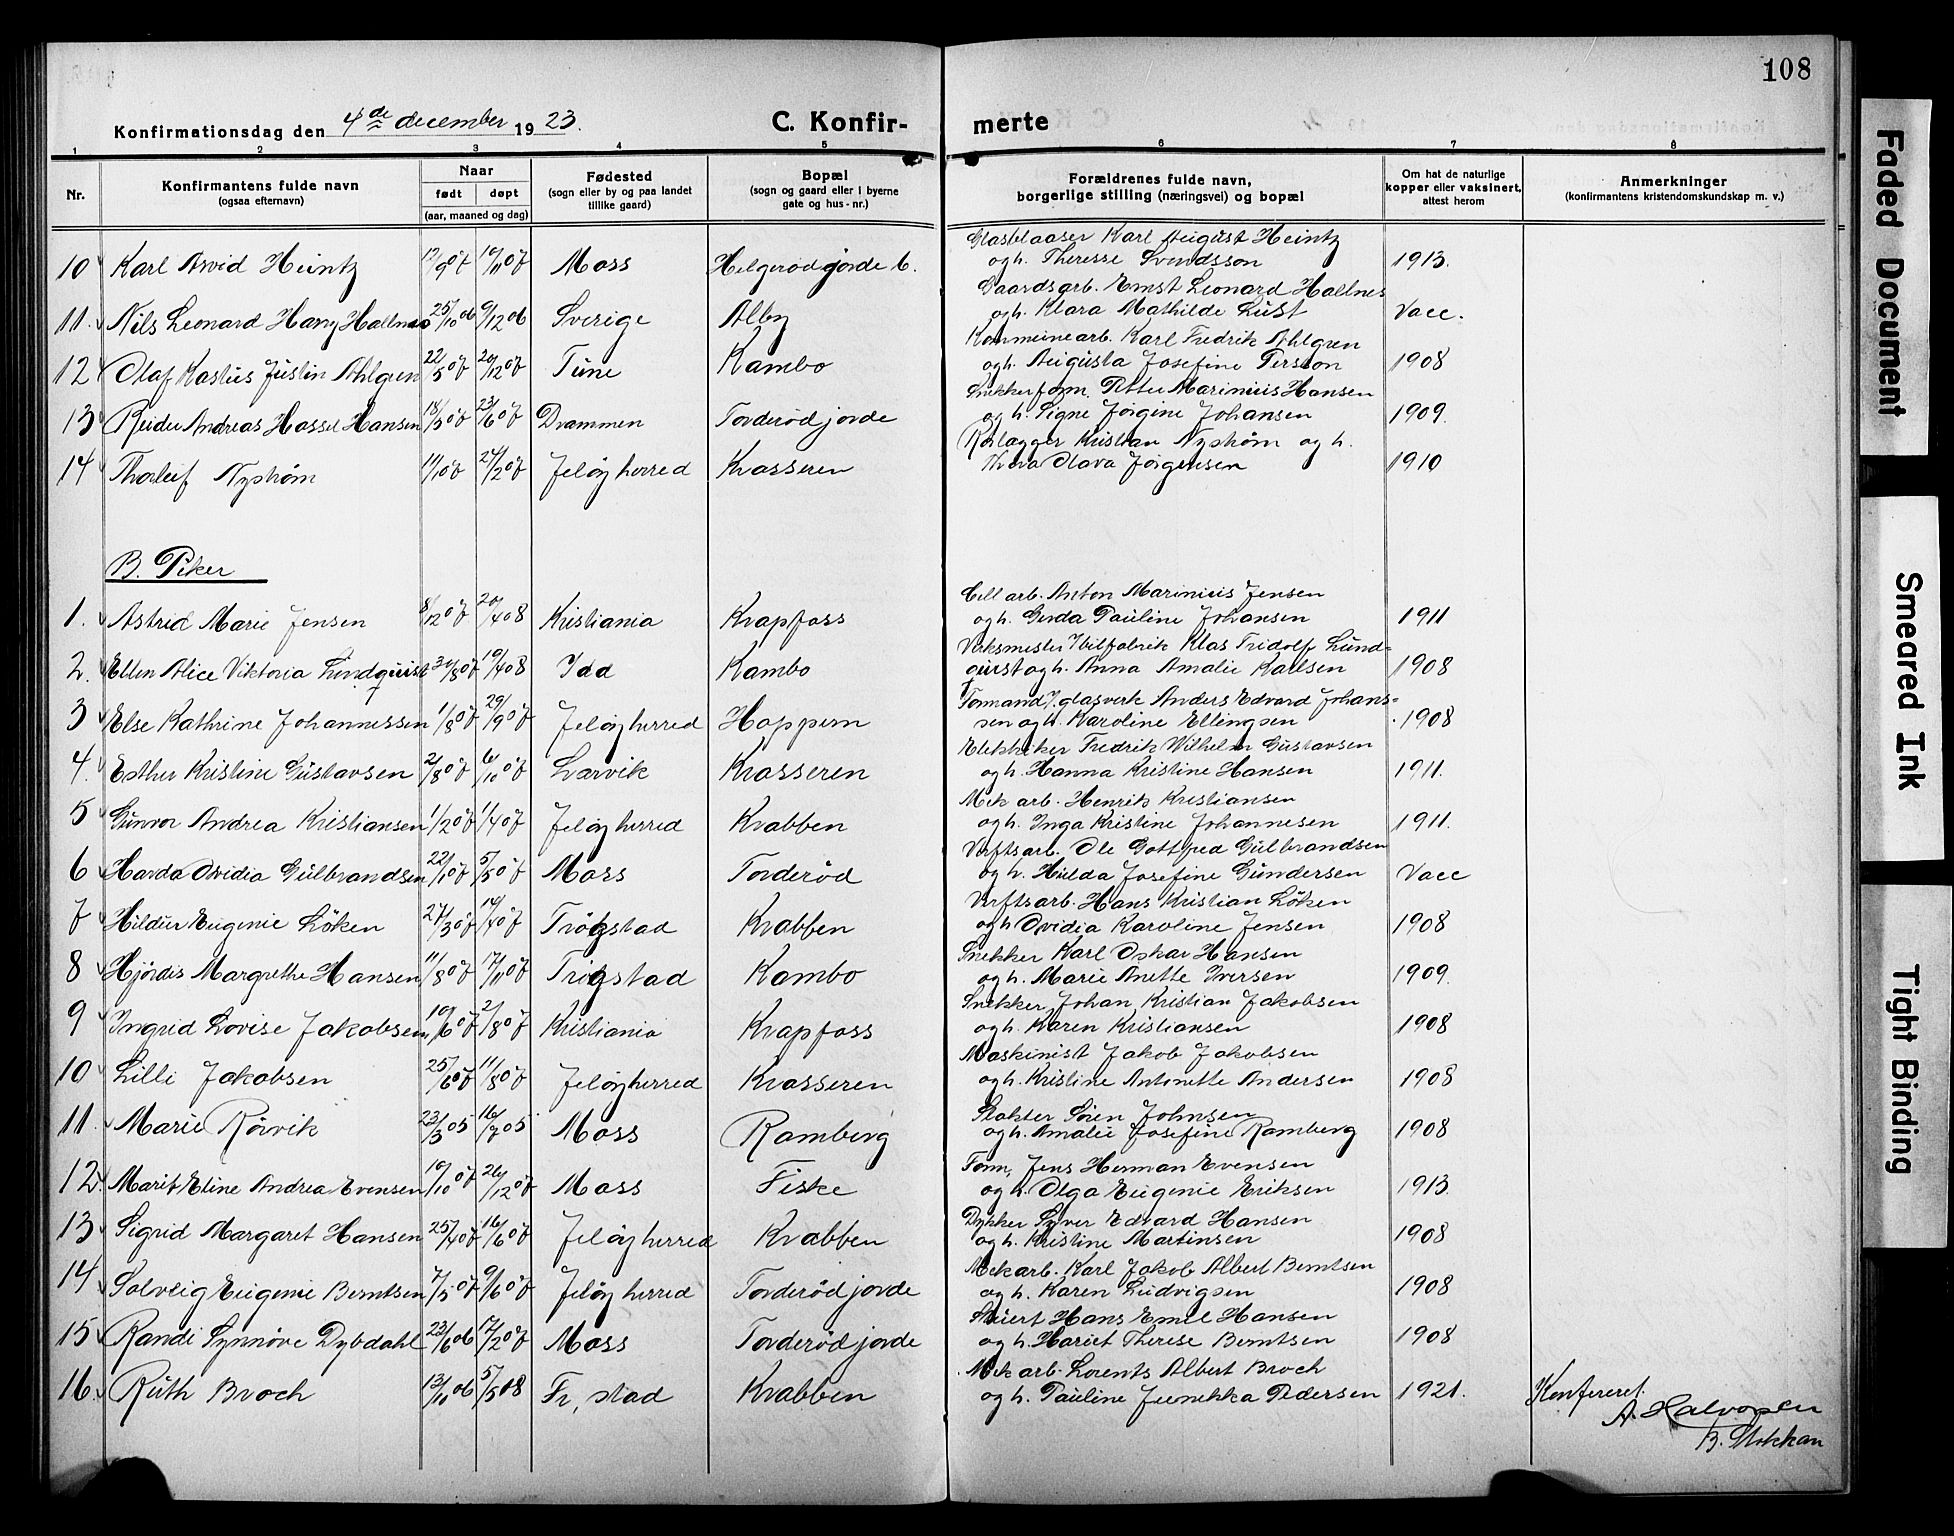 108
Konfirmationsdag den 4de december 1923.
C. Konfirmerte
1 2 3 4 5 6 7 8
Nr. Konfirmantens fulde navn (ogsaa efternavn) Naar født døpt (aar, maaned og dag) Fødested (sogn eller by og paa landet tillike gaard) Bopæl (sogn og gaard eller i byerne gate og hus-nr.) Forældrenes fulde navn, borgerlige stilling (næringsvei) og bopæl Om hat de naturlige kopper eller vaksinert, attest herom Anmerkninger (konfirmantens kristendomskundskap m. v.)
Glasblaaser Karl August Heintz
10 Karl Arvid Heintz 17/9 07 10/11 07 Moss Helgerødgjorde b. og h. Theresse Svendsson 1913.
Gaardsarb. Ernst Leonard Hallnes
11. Nils Leonard Hallnes 25/10 06 9/12 06 Sverige Alby og h. Klara Mathilde Lust Vacc.
Kommunearb. Karl Fredrik Ahlgren
12 Olaf Kastus Justin Ahlgren 22/5 07 20/12 07 Tune Kambo og h. Augusta Josefine Persson 1908
Snekkerform. Petter Marinius Hansen
13 Reidar Andreas Hassel Hansen 18/5 07 23/6 07 Drammen Torderødjorde og h. Signe Jørgine Johansen 1909.
Rørlægger Kristian Nystrøm og h.
14 Thorleif Nystrøm 1/1 07 24/2 07 Jeløy herred Krasseren Thora Olava Jørgensen 1910
B. Piker
Cell arb. Anton Marinius Jensen
1. Astrid Marie Jensen 8/12 07 20/4 08 Kristiania Krapfoss og h. Gerda Pauline Johansen 1911
Verksmester I bilfabrik Klas Fridolf Lund-
2. Ellen Alice Viktoria Lundquist 30/8 07 19/4 08 Idd Kambo quist og h. Anna Amalie Karlsen 1908
Formand I glasverk Anders Edvard Johans-
3 Else Kathrine Johannessen 1/8 07 29/9 07 Jeløy herred Hoppern sen og h. Karoline Ellingsen 1908
Elektriker Fredrik Wilhelm Gustavsen
4. Esther Kristine Gustavsen 2/8 07 6/10 07 Larvik Krasseren og h. Hanna Kristine Hansen 1911.
Mek arb. Henrik Kristiansen
5 Gunvor Andrea Kristiansen 1/2 07 1/4 07 Jeløy herred Krabben og h. Inga Kristine Johannesen 1911.
Verftsarb. Ole Gottfred Gulbrandsen
6 Harda Ovidia Gulbrandsen 22/1 07 5/5 07 Moss Torderød og h. Hulda Josefine Gundersen Vacc
Verftsarb. Hans Kristian Løken
7 Hildur Eugenie Løken 27/3 07 14/4 07 Trøgstad Krabben og h Ovidia Karoline Jensen 1908
Snekker Karl Oskar Hansen
8 Hjørdis Margrethe Hansen 11/8 07 17/11 07 Trøgstad Kambo og h. Marie Anette Iversen 1909.
Snekker Johan Kristian Jakobsen
9 Ingrid Lovise Jakobsen 10/6 07 2/8 07 Kristiania Krapfoss og h. Karen Kristiansen 1908
Maskinist Jakob Jakobsen
10 Lilli Jakobsen 25/6 07 11/8 07 Jeløy herred Krasseren og h. Kristine Antonette Andersen 1908
Slakter Søren Johnsen
11. Marie Rørvik 23/3 05 16/7 05 Moss Ramberg og h. Amalie Josefine Ramberg 1908
Form, Jens Herman Evensen
12. Marit Eline Andrea Evensen 10/10 07 26/12 07 Moss Fiske og h. Olga Eugenie Eriksen 1913.
Dykker Syver Edvard Hansen
13 Sigrid Margaret Hansen 25/4 07 16/6 07 Jeløy herred Krabben og h. Kristine Martinsen 1908
Mek arb. Karl Jakob Albert Berntsen
14 Solveig Eugenie Berntsen 7/5 07 9/6 07 Jeløy herred Torderødjorde og h. Karen Ludvigsen 1908
Stuert Hans Emil Hansen
15 Randi Synnøve Dybdahl 23/6 06 17/2 07 Moss Torderødjorde og h. Hariet Therese Berntsen 1908
Mek arb. Lorents Albert Broch
16. Ruth Broch 13/10 06 5/5 08 Fr, stad Krabben og h. Pauline Pedersen 1921. Konfereret.
A. Halvorsen
B. Stokkan
Faded Document
Smeared Ink
Tight Binding